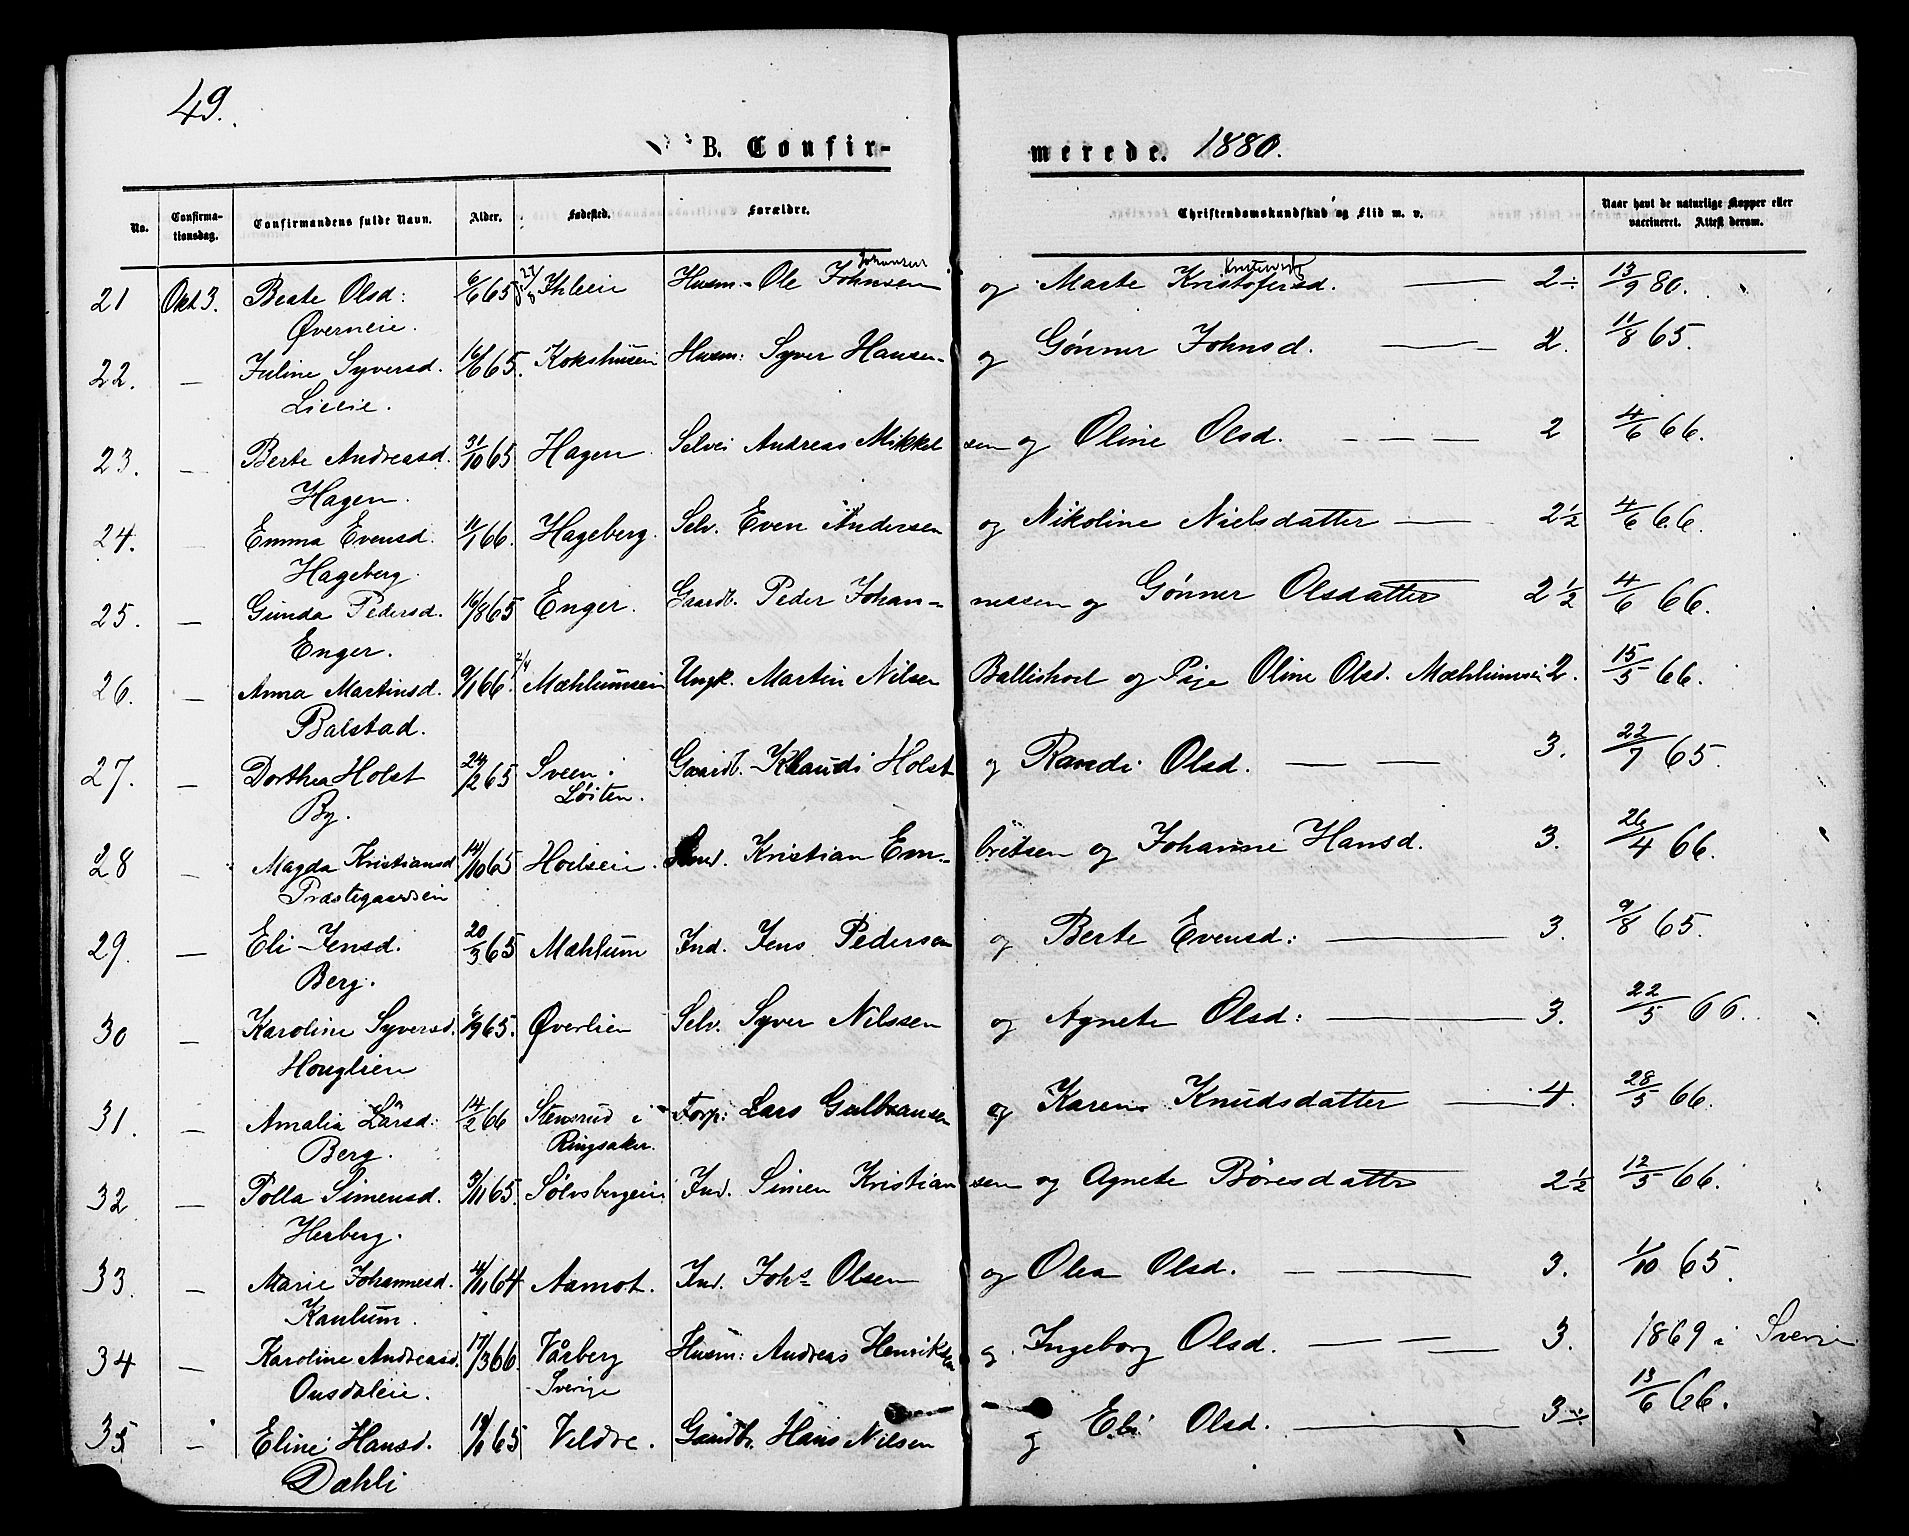 49.
B. Confir-
merede. 1880.
No. Confirma-tionsdag. Confirmandens fulde Navn. Alder. Fødested. Forældre. Christendomskundskab og Flid m. v. Naar havt de naturlige Kopper eller vaccineret. Attest derom.
Johansen
21 Okt 3. Berte Olsd: 6/6 65 Ihleie Husm. Ole Johnsen og Marte Kristofersd. 2÷ 13/9 80.
Øverneie.
22. — Juline Syversd. 16/6 65. Kokshuseie Husm: Syver Hansen og Gønner Johnsd. 2. 11/8 65.
Lieeie.
23. — Berte Andreasd. 31/10 65 Hagen. Selvei Andreas Mikkelsen og Oline Olsd. 2 4/6 66.
Hagen.
24. — Emma Evensd. 11/1 66. Hageberg. Selv. Even Andersen og Nikoline Nielsdatter 2 1/2 4/6 66.
Hageberg.
25. — Gunda Pedersd. 16/8 65 Enger. Gaardb. Peder Johannessen og Gønner Olsdatter 2 1/2 4/6 66.
Enger.
26. — Anna Martinsd. 9/1 66. Mæhlumseie Ungk. Martin Nilsen og Pige Oline Olsd. Mæhlumsei 2. 15/5 66.
Balstad.
27. — Dorthea Holst 24/2 65 Sveen i Gaardb. Klaudi Holst og Randi Olsd. 3. 22/7 65.
By. Løiten.
28 — Magda Kristiansd. 14/10 65 Hoelseie. Kristian Embretsen og Johanne Hansd. 3. 26/4 66.
Præstegaardseie
29. — Eli Jensd. 20/3 65 Mæhlum Ind. Jens Pedersen og Berte Evensd: 3. 9/8 65.
Berg.
30 — Karoline Syversd. 6/9 65. Øverlien Selv. Syver Nilssen og Agnete Olsd: 3. 22/5 66.
Houglien
31. — Amalia Larsd: 14/2 66 Stensrud i Forp: Lars Gulbransen og Karen Knudsdatter 4. 28/5 66.
Berg. Ringsaker.
32 — Polla Simensd. 3/11 65. Sølvsbergeie Ind. Simen Kristiansen og Agnete Børesdatter 2 1/2 12/5 66.
Herberg.
33. — Marie Johannesd. 4/11 64 Aamot. Ind. Johs Olsen og Olea Olsd. 3. 1/10 65.
Kanlum.
34 — Karoline Andreasd. 17/3 66 Vårberg Husm: Andreas Henriksen og Ingeborg Olsd. 3. 1869 i Sverige
Onsdaleie. Sverige
35 — Eline Hansd. 65 Veldre. Gaardbr. Hans Nilsen og Eli Olsd. 3÷ 13/6 66.
Dæhli